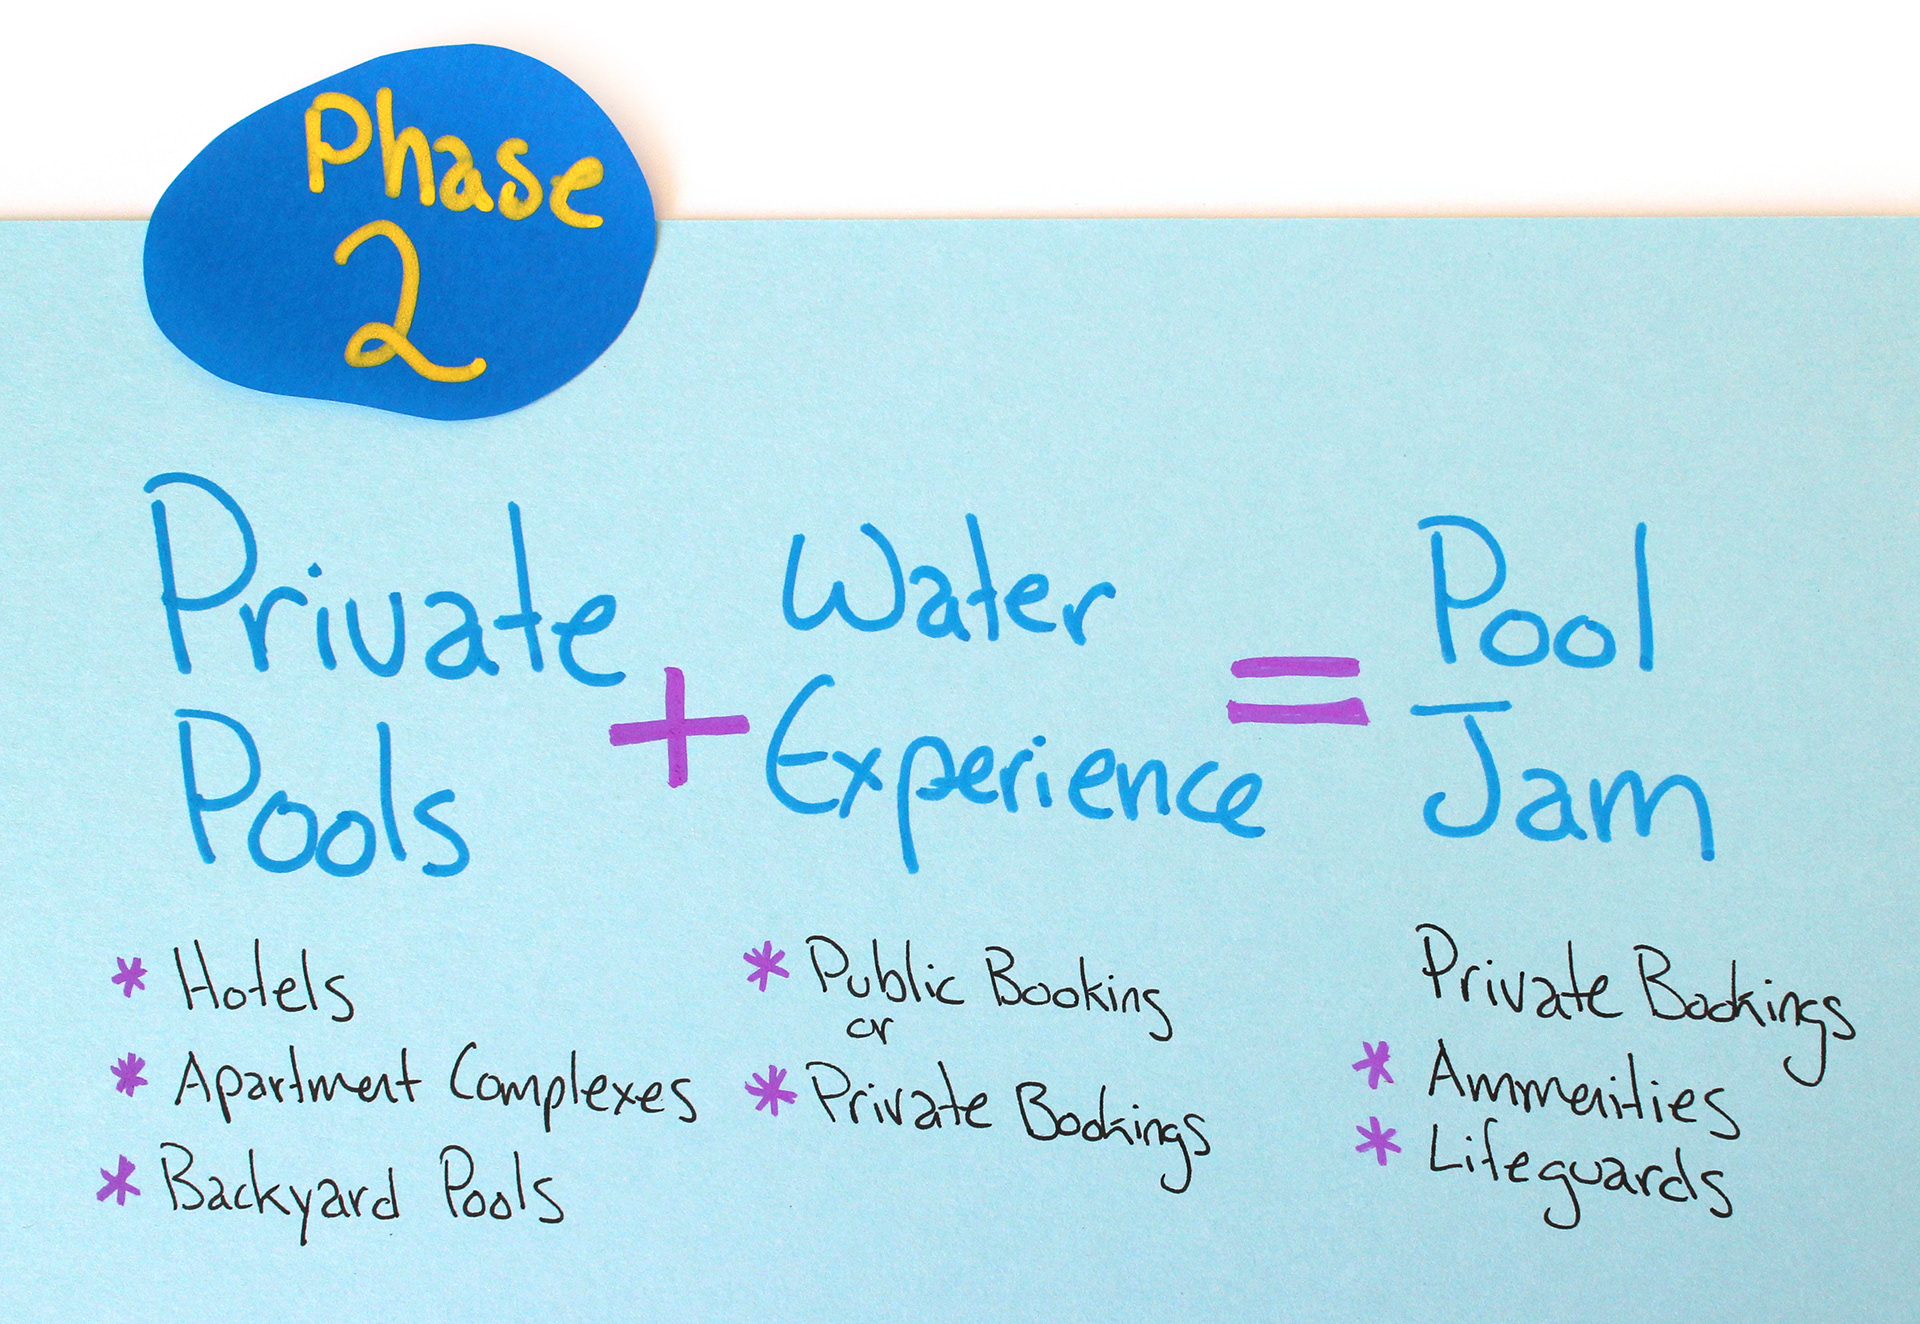 Phase
2
Private
Pools
+
Water
Experience
=
Pool
Jam
* Hotels
* Apartment Complexes
* Backyard Pools
* Public Booking
or
* Private Bookings
Private Bookings
* Ammenities
* Lifeguards